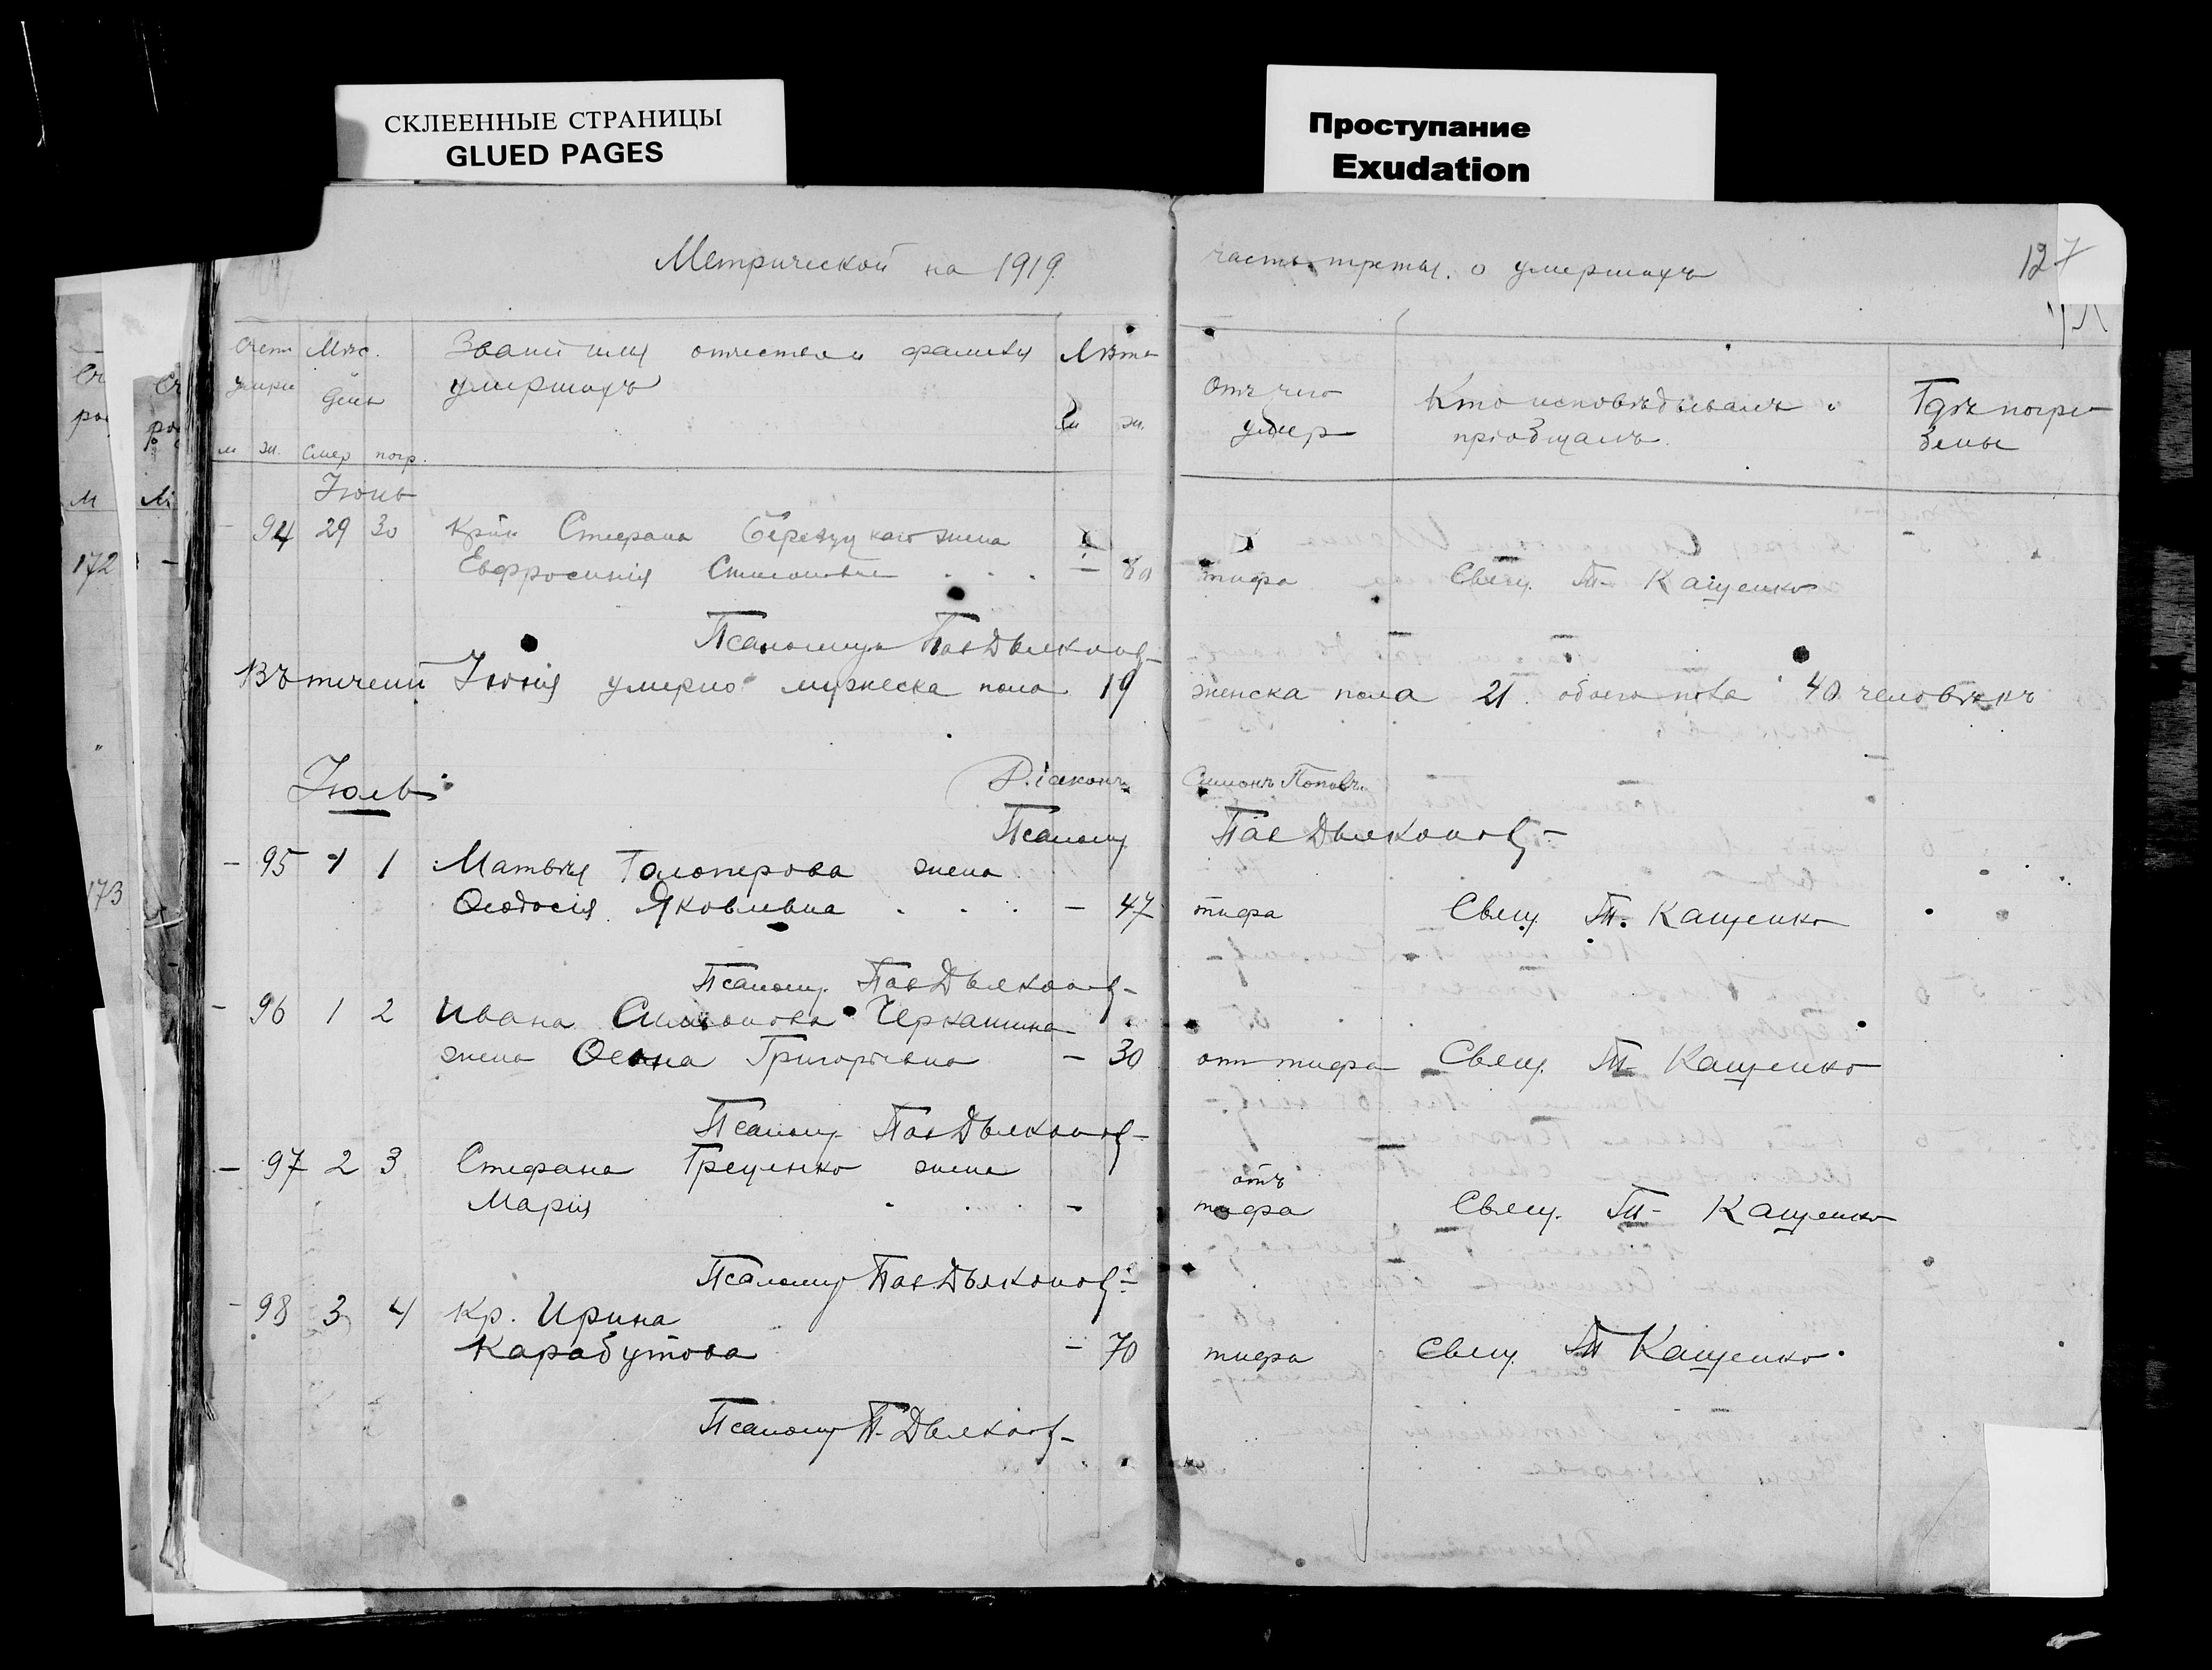 СКЛЕЕННЫЕ СТРАНИЦЫ
GLUED PAGES
Проступание
Exudation
Метрической на 1919. часть третья. о умершихъ 127
Счетъ Мѣс. Званіе имя отчество и фамилія Лѣта
умерш день умершихъ
м ж. м ж.
смер погр.
Отъ чего умер
Кто исповѣдывалъ и пріобщалъ.
Гдѣ погребены
Июнь
- 94 29 30 Крн Стефана жена
Евфросинія - 80 тифа Свящ. Т. Кащенко
Псаломщ Пав Дьяконов
Въ течении Июня умерло мужеска пола 19 женска пола 21 обоего пола 40 человѣкъ
Июль
Діаконъ Симонъ Поповъ
Псаломщ Пав Дьяконов
- 95 1 1 Матвѣя Голоперова жена
Ѳеодосія Яковлевна . . . - 47 тифа Свящ. Т. Кащенко
Псаломщ. Пав Дьяконов
- 96 1 2 Ивана Черкашина
жена Григоріевна - 30 отъ тифа Свящ. Т. Кащенко
Псаломщ. Пав Дьяконов
- 97 2 3 Стефана Греценко жена
Марія . . - отъ тифа Свящ. Т. Кащенко
Псаломщ Пав Дьяконов
- 98 3 4 Кр. Ирина
Карабутова - 70 тифа Свящ. Т Кащенко.
Псаломщ П. Дьяконов
172
173